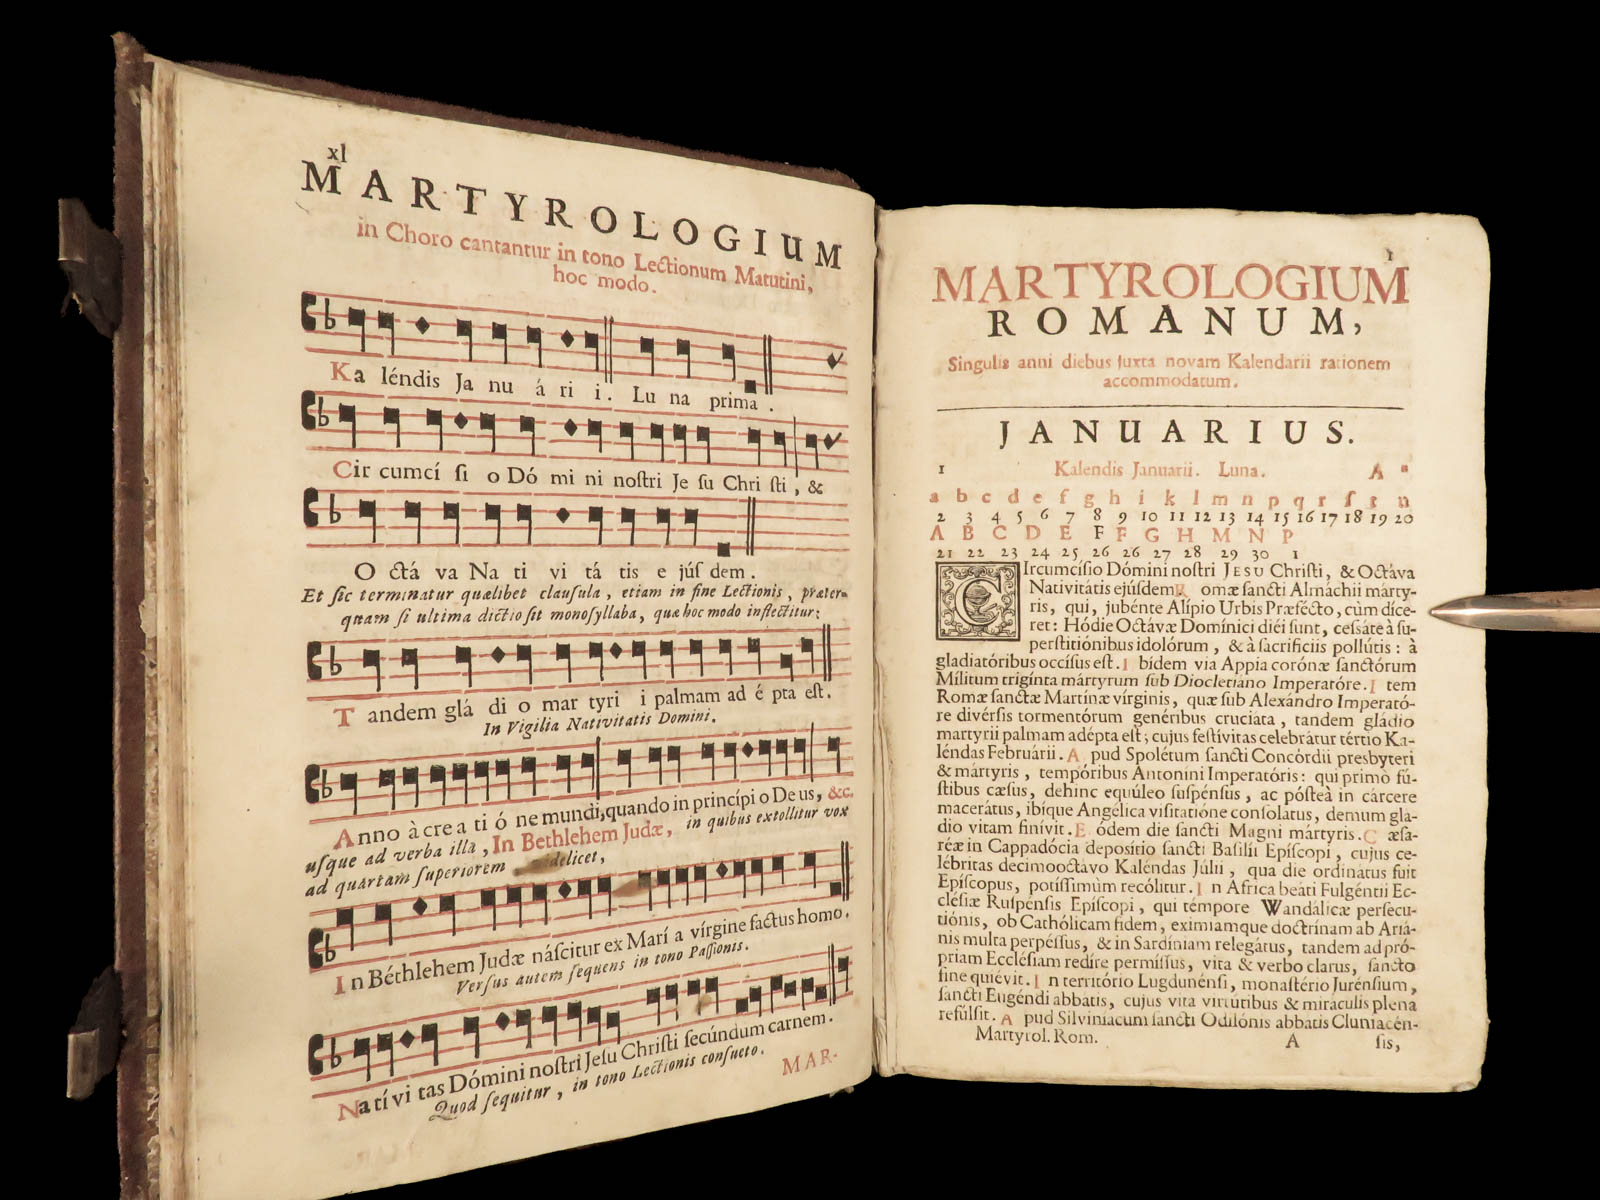 xl
MARTYROLOGIUM
in Choro cantantur in tono Lectionum Matutini,
hoc modo.
Ka léndis Ja nu á ri i. Lu na prima.
Cir cumcí ſi o Dó mi ni noſtri Je ſu Chri ſti, &
O ctá va Na ti vi tá tis e júſ dem.
Et ſic terminatur quælibet clauſula, etiam in fine Lectionis, præter-
quam ſi ultima dictio ſit monoſyllaba, quæ hoc modo inflectitur:
T andem glá di o mar tyri i palmam ad é pta eſt.
In Vigilia Nativitatis Domini.
Anno à cre a ti ó ne mundi, quando in princípi o De us, &c.
uſque ad verba illa, In Bethlehem Judæ, in quibus extollitur vox
ad quartam ſuperiorem delicet,
In Béthlehem Judæ náſcitur ex Marí a vírgine factus homo.
Verſus autem ſequens in tono Paſſionis.
Na tí vi tas Dómini noſtri Jeſu Chriſti ſecúndum carnem.
Quod ſequitur, in tono Lectionis conſueto.
MAR-
1
MARTYROLOGIUM
ROMANUM,
Singulis anni diebus juxta novam Kalendarii rationem
accommodatum.
JANUARIUS.
1 Kalendis Januarii. Luna. A
a b c d e f g h i k l m n p q r ſ t u
2 3 4 5 6 7 8 9 10 11 12 13 14 15 16 17 18 19 20
A B C D E F F G H M N P
21 22 23 24 25 26 26 27 28 29 30 1
CIrcumcíſio Dómini noſtri JESU Chriſti, & Octáva
Nativitátis ejúſdem. R omæ ſancti Almáchii márty-
ris, qui, jubénte Alípio Urbis Præfécto, cùm díce-
ret: Hódie Octávæ Domínici diéi ſunt, ceſſáte à ſu-
perſtitiónibus idolórum, & à ſacrifíciis pollútis: à
gladiatóribus occíſus eſt. I bídem via Appia corónæ ſanctórum
Mílitum trigínta mártyrum ſub Diocletiano Imperatóre. I tem
Romæ ſanctæ Martínæ vírginis, quæ ſub Alexándro Imperató-
re divérſis tormentórum genéribus cruciáta, tandem gládio
martyrii palmam adépta eſt; cujus feſtívitas celebrátur tértio Ka-
léndas Februárii. A pud Spolétum ſancti Concórdii presbyteri
& mártyris, tempóribus Antoníni Imperatóris: qui primò fú-
ſtibus cæſus, dehinc equúleo ſuſpénſus, ac póſteà in cárcere
macerátus, ibíque Angélica viſitatióne conſolatus, demum glá-
dio vitam finívit. E ódem die ſancti Magni mártyris. C æſa-
réæ in Cappadócia depoſítio ſancti Baſílii Epíſcopi, cujus ce-
lébritas decimooctávo Kaléndas Júlii, qua die ordinátus fuit
Epíſcopus, potíſſimùm recólitur. I n Africa beáti Fulgéntii Ec-
cléſiæ Ruſpénſis Epíſcopi, qui témpore Wandálicæ perſecu-
tiónis, ob Cathólicam fidem, eximiamque doctrínam ab Ariá-
nis multa perpéſſus, & in Sardíniam relegátus, tandem ad pró-
priam Ecclésiam redíre permíſſus, vita & verbo clarus, ſancto
fine quiévit. I n território Lugdunénſi, monaſtério Jurénſium,
ſancti Eugéndi abbatis, cujus vita virtútibus & miráculis plena
refúlſit. A pud Silviniacum ſancti Odilónis abbatis Cluniacén-
Martyrol. Rom. A ſis,